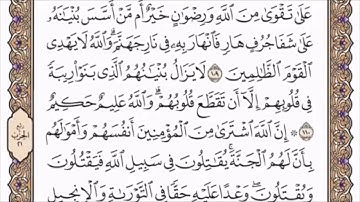 عَلَىٰ تَقْوَىٰ مِنَ ٱللَّهِ وَرِضْوَٰنٍ خَيْرٌ أَم مَّنْ أَسَّسَ بُنْيَـٰنَهُۥ
عَلَىٰ شَفَا جُرُفٍ هَارٍ فَٱنْهَارَ بِهِۦ فِى نَارِ جَهَنَّمَ ۗ وَٱللَّهُ لَا يَهْدِى
ٱلْقَوْمَ ٱلظَّـٰلِمِينَ ١٠٩ لَا يَزَالُ بُنْيَـٰنُهُمُ ٱلَّذِى بَنَوْا۟ رِيبَةً
فِى قُلُوبِهِمْ إِلَّآ أَن تَقَطَّعَ قُلُوبُهُمْ ۗ وَٱللَّهُ عَلِيمٌ حَكِيمٌ
١١٠ ۞ إِنَّ ٱللَّهَ ٱشْتَرَىٰ مِنَ ٱلْمُؤْمِنِينَ أَنفُسَهُمْ وَأَمْوَٰلَهُم
بِأَنَّ لَهُمُ ٱلْجَنَّةَ ۚ يُقَـٰتِلُونَ فِى سَبِيلِ ٱللَّهِ فَيَقْتُلُونَ
وَيُقْتَلُونَ ۖ وَعْدًا عَلَيْهِ حَقًّا فِى ٱلتَّوْرَىٰةِ وَٱلْإِنجِيلِ